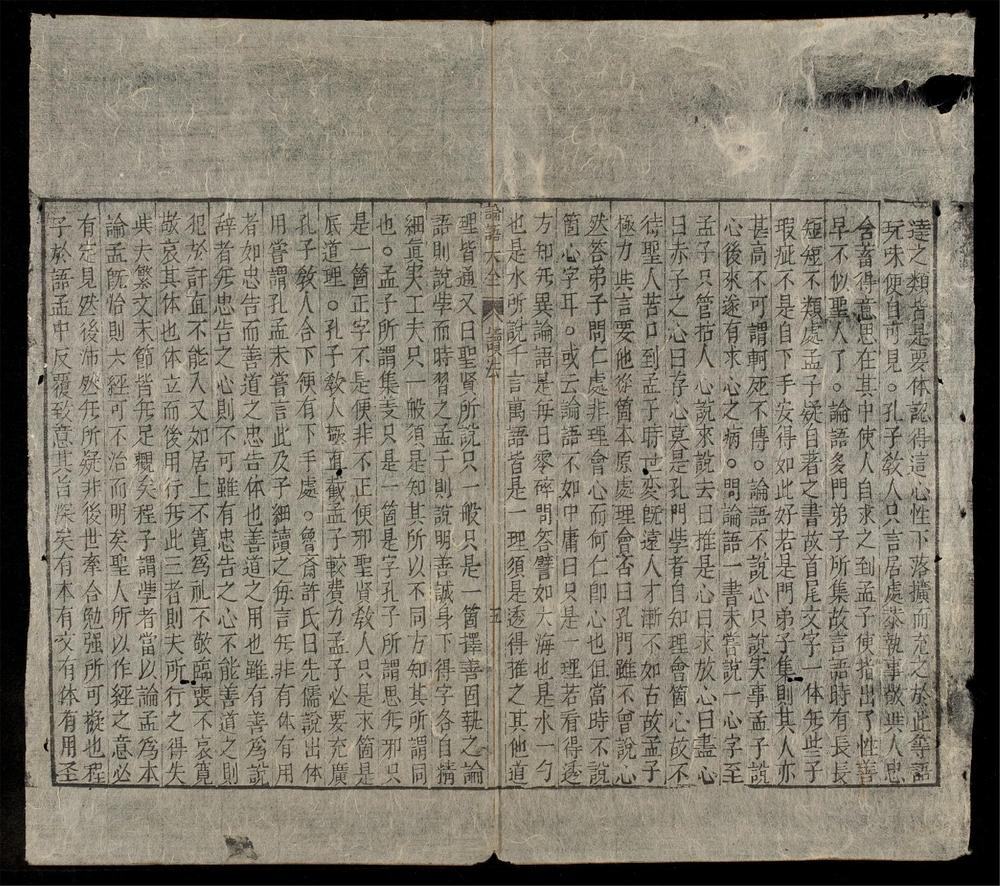 達之類皆是要体認得這心性下落擴而充之於此等語
玩味便自可見。孔子教人只言居處恭執事敬與人忠
含蓄得意思在其中使人自求之到孟子便指出了性善
早不似聖人了。論語多門弟子所集故言語時有長長
短短不類處孟子疑自著之書故首尾文字一体无些子
瑕疵不是自下手安得如此好若是門弟子集則其人亦
甚高不可謂軻死不傳。論語不說心只說实事孟子說
心後來遂有求心之病。問論語一書未嘗說一心字至
孟子只管拈人心說來說去曰推是心曰求放心曰盡心
曰赤子之心曰存心莫是孔門斈者自知理會箇心故不
待聖人苦口到孟子時世变既遠人才漸不如古故孟子
極力與言要他從箇本原處理會否曰孔門雖不曾說心
然答弟子問仁處非理會心而何仁即心也但當時不說
箇心字耳。或云論語不如中庸曰只是一理若看得透
方知无異論語是每日零碎問答譬如大海也是水一勺
也是水所說千言萬語皆是一理須是透得推之其他道
論語大全 讀法 五
理皆通又曰聖賢所說只一般只是一箇擇善固執之論
語則說斈而時習之孟子則說明善誠身下得字各自精
細真实工夫只一般須是知其所以不同方知其所謂同
也。孟子所謂集義只是一箇是字孔子所謂思无邪只
是一箇正字不是便非不正便邪聖賢教人只是求箇是
底道理。孔子教人極直截孟子較費力孟子必要充廣
孔子教人合下便有下手處。魯齋許氏曰先儒說出体
用嘗謂孔孟未嘗言此及子細讀之每言无非有体有用
者如忠告而善道之忠告体也善道之用也雖有善為說
辞者无忠告之心則不可雖有忠告之心不能善道之則
犯於訐直不能入又如居上不寬為礼不敬臨喪不哀寬
敬哀其体也体立而後用行无此三者則夫所行之得失
與夫繁文末節皆无足觀矣程子謂斈者當以論孟為本
論孟既治則六經可不治而明矣聖人所以作經之意必
有定見然後沛然无所疑非後世牽合勉强所可擬也程
子於語孟中反覆致意其旨深矣有本有文有体有用圣